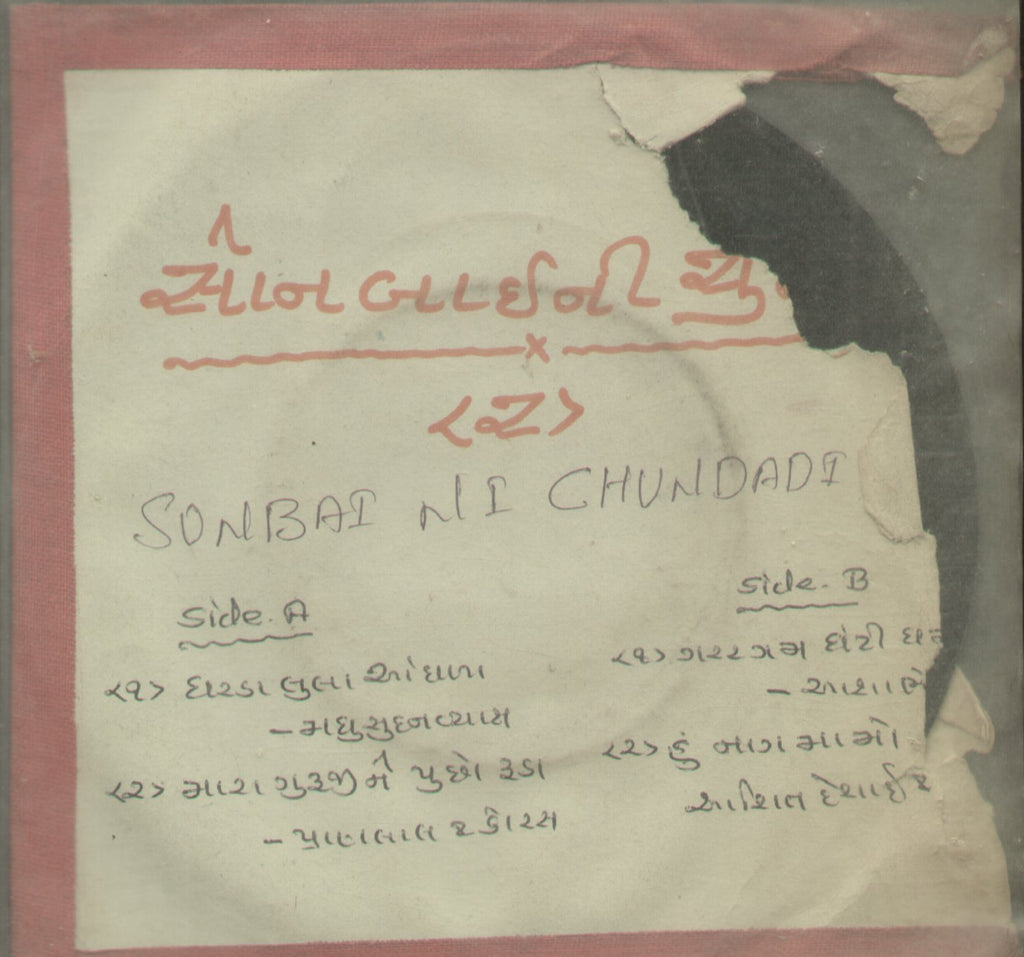 સોનબાઈની ચુ
x
<૨>
SONBAI NI CHUNDADI
Side. A
<૧> ઘરડા લુલા આંધળા
- મધુસુદન વ્યાસ
<૨> મારા ગુરૂજીને પુછો રૂડા
- પ્રાણલાલ & કોરસ
Side. B
<૧> ગરર ગમ ઘંટી
- આશા ભો
<૨> હું બાગમા
આશિત દેસાઈ &